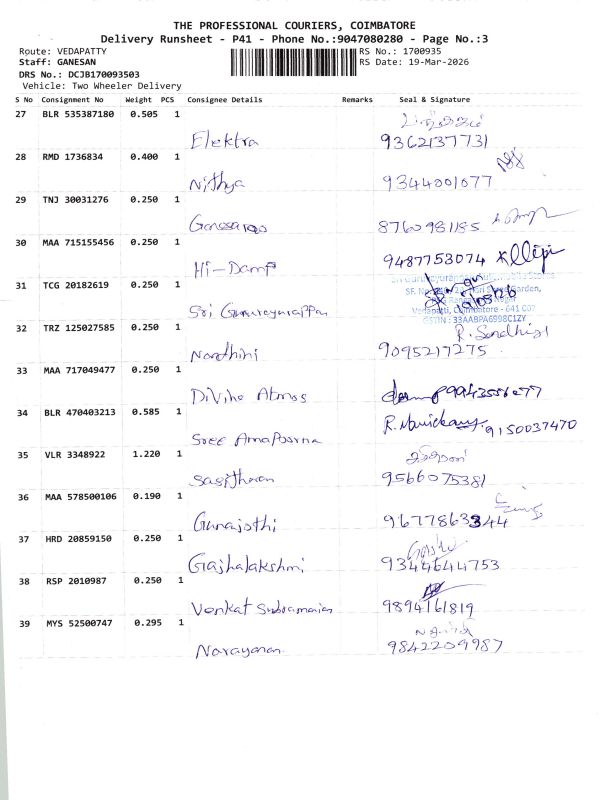 THE PROFESSIONAL COURIERS, COIMBATORE
Delivery Runsheet - P41 - Phone No.:9047080280 - Page No.:3
Route: VEDAPATTY RS No.: 1700935
Staff: GANESAN RS Date: 19-Mar-2026
DRS No.: DCJB170093503
Vehicle: Two Wheeler Delivery
S No Consignment No Weight PCS Consignee Details Remarks Seal & Signature
27 BLR 535387180 0.505 1
Elektra 9362137731
28 RMD 1736834 0.400 1
Nithya 9344001077
29 TNJ 30031276 0.250 1
8760981185
30 MAA 715155456 0.250 1
Hi-Damp 9487753074
31 TCG 20182619 0.250 1
Sri Gururayurappan
Vedapatti, Coimbatore - 641 007
GSTIN : 33AABPA6998C1ZY
32 TRZ 125027585 0.250 1
Nandhini 9095217275
33 MAA 717049477 0.250 1
DiVine Atmos
34 BLR 470403213 0.585 1
Sree AnnaPoorna 9150037470
35 VLR 3348922 1.220 1
Sasitharan 9566075381
36 MAA 578500106 0.190 1
Gunajothi 9677863344
37 HRD 20859150 0.250 1
Gajhalakshmi 9344644753
38 RSP 2010987 0.250 1
Venkat Subramanian 9894161819
39 MYS 52500747 0.295 1
Narayanan 9842209987